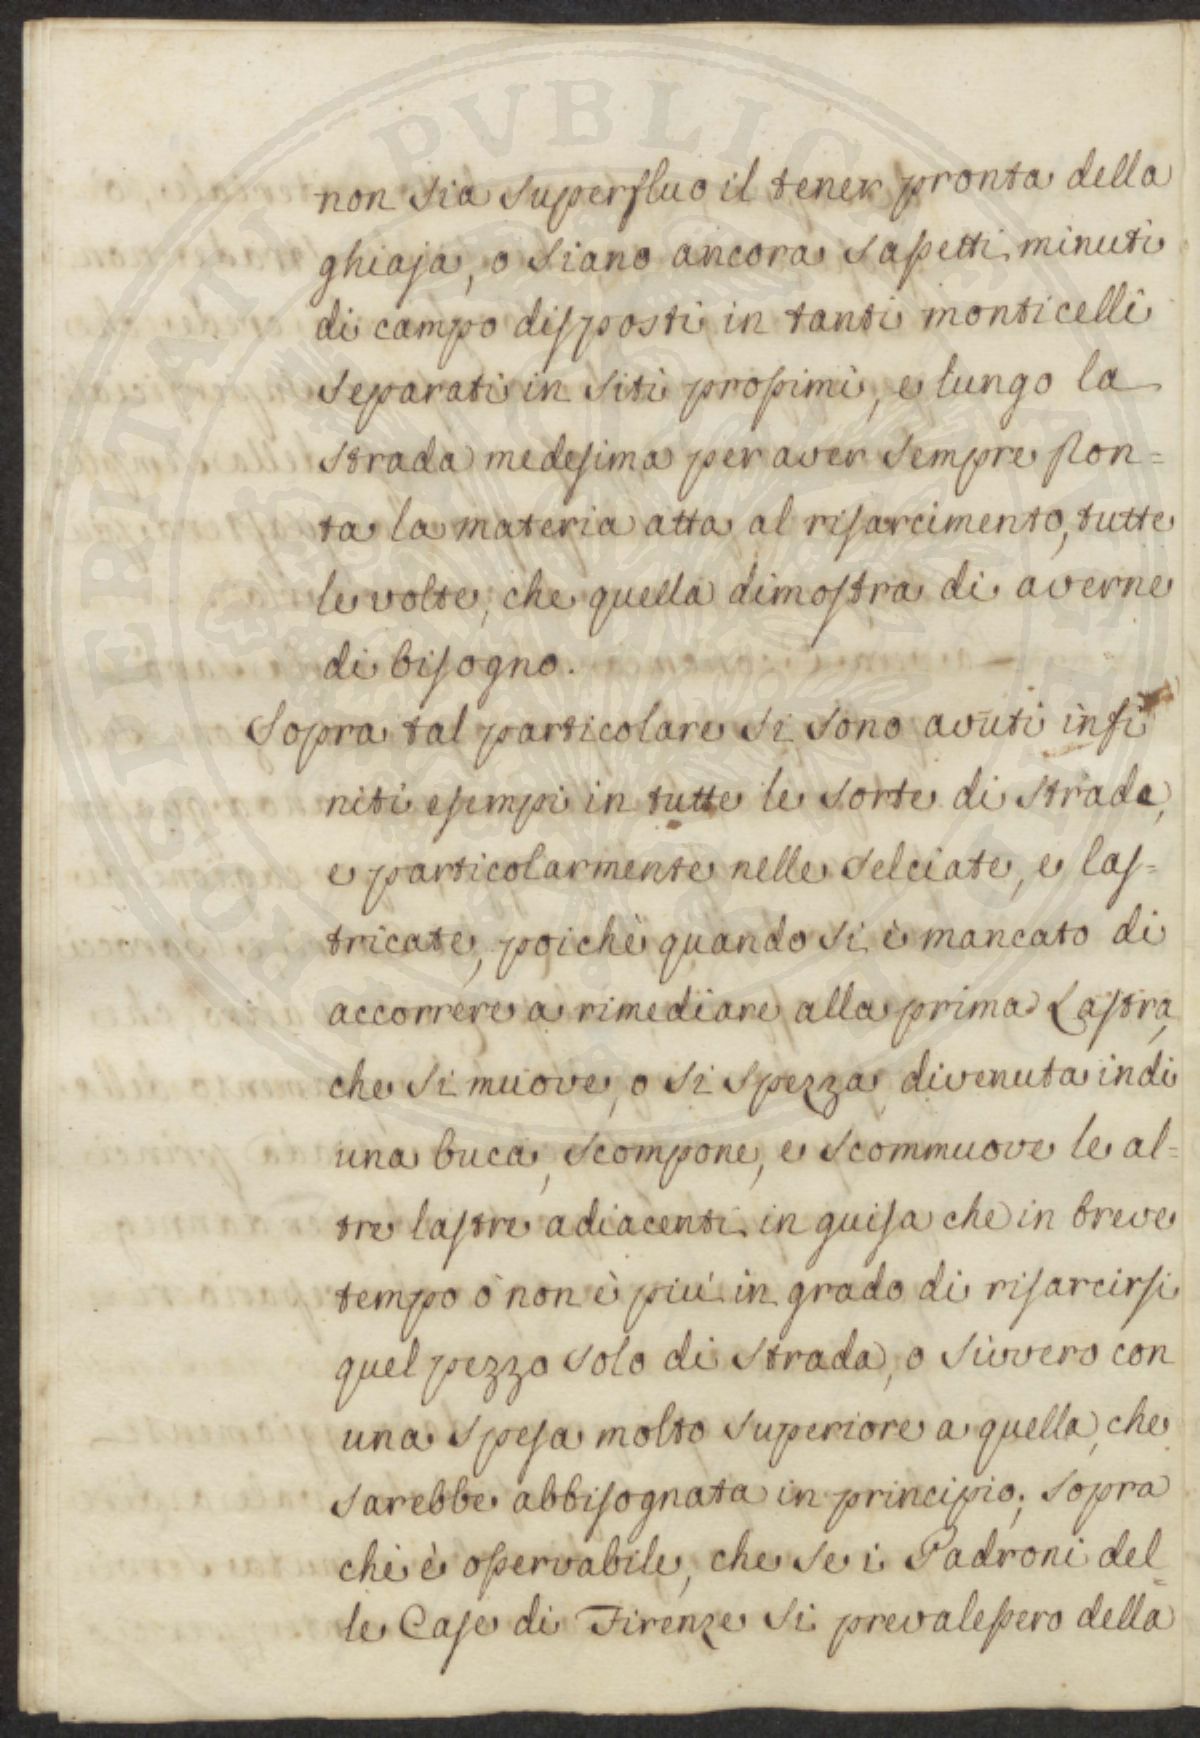 non sia superfluo il tener pronta della
ghiaja, o siano ancora sassetti minuti
di campo disposti in tanti monticelli
separati in siti prossimi, e lungo la
strada medesima per aver sempre pron=
ta la materia atta al risarcimento, tutte
le volte, che quella dimostra di averne
di bisogno.
Sopra tal particolare si sono avuti infi
niti esempi in tutte le sorte di strade,
e particolarmente nelle selciate, e las=
tricate, poichè quando si è mancato di
accorrere a rimediare alla prima Lastra,
che si muove, o si spezza, divenuta indi
una buca, scompone, e scommuove le al=
tre lastre adiacenti in guisa che in breve
tempo ò non è più in grado di risarcirsi
quel pezzo solo di strada, o sivvero con
una spesa molto superiore a quella, che
sarebbe abbisognata in principio; sopra
chè è osservabile, che se i Padroni del=
le Case di Firenze si prevalessero della
PROSPERITATI PVBLICAE